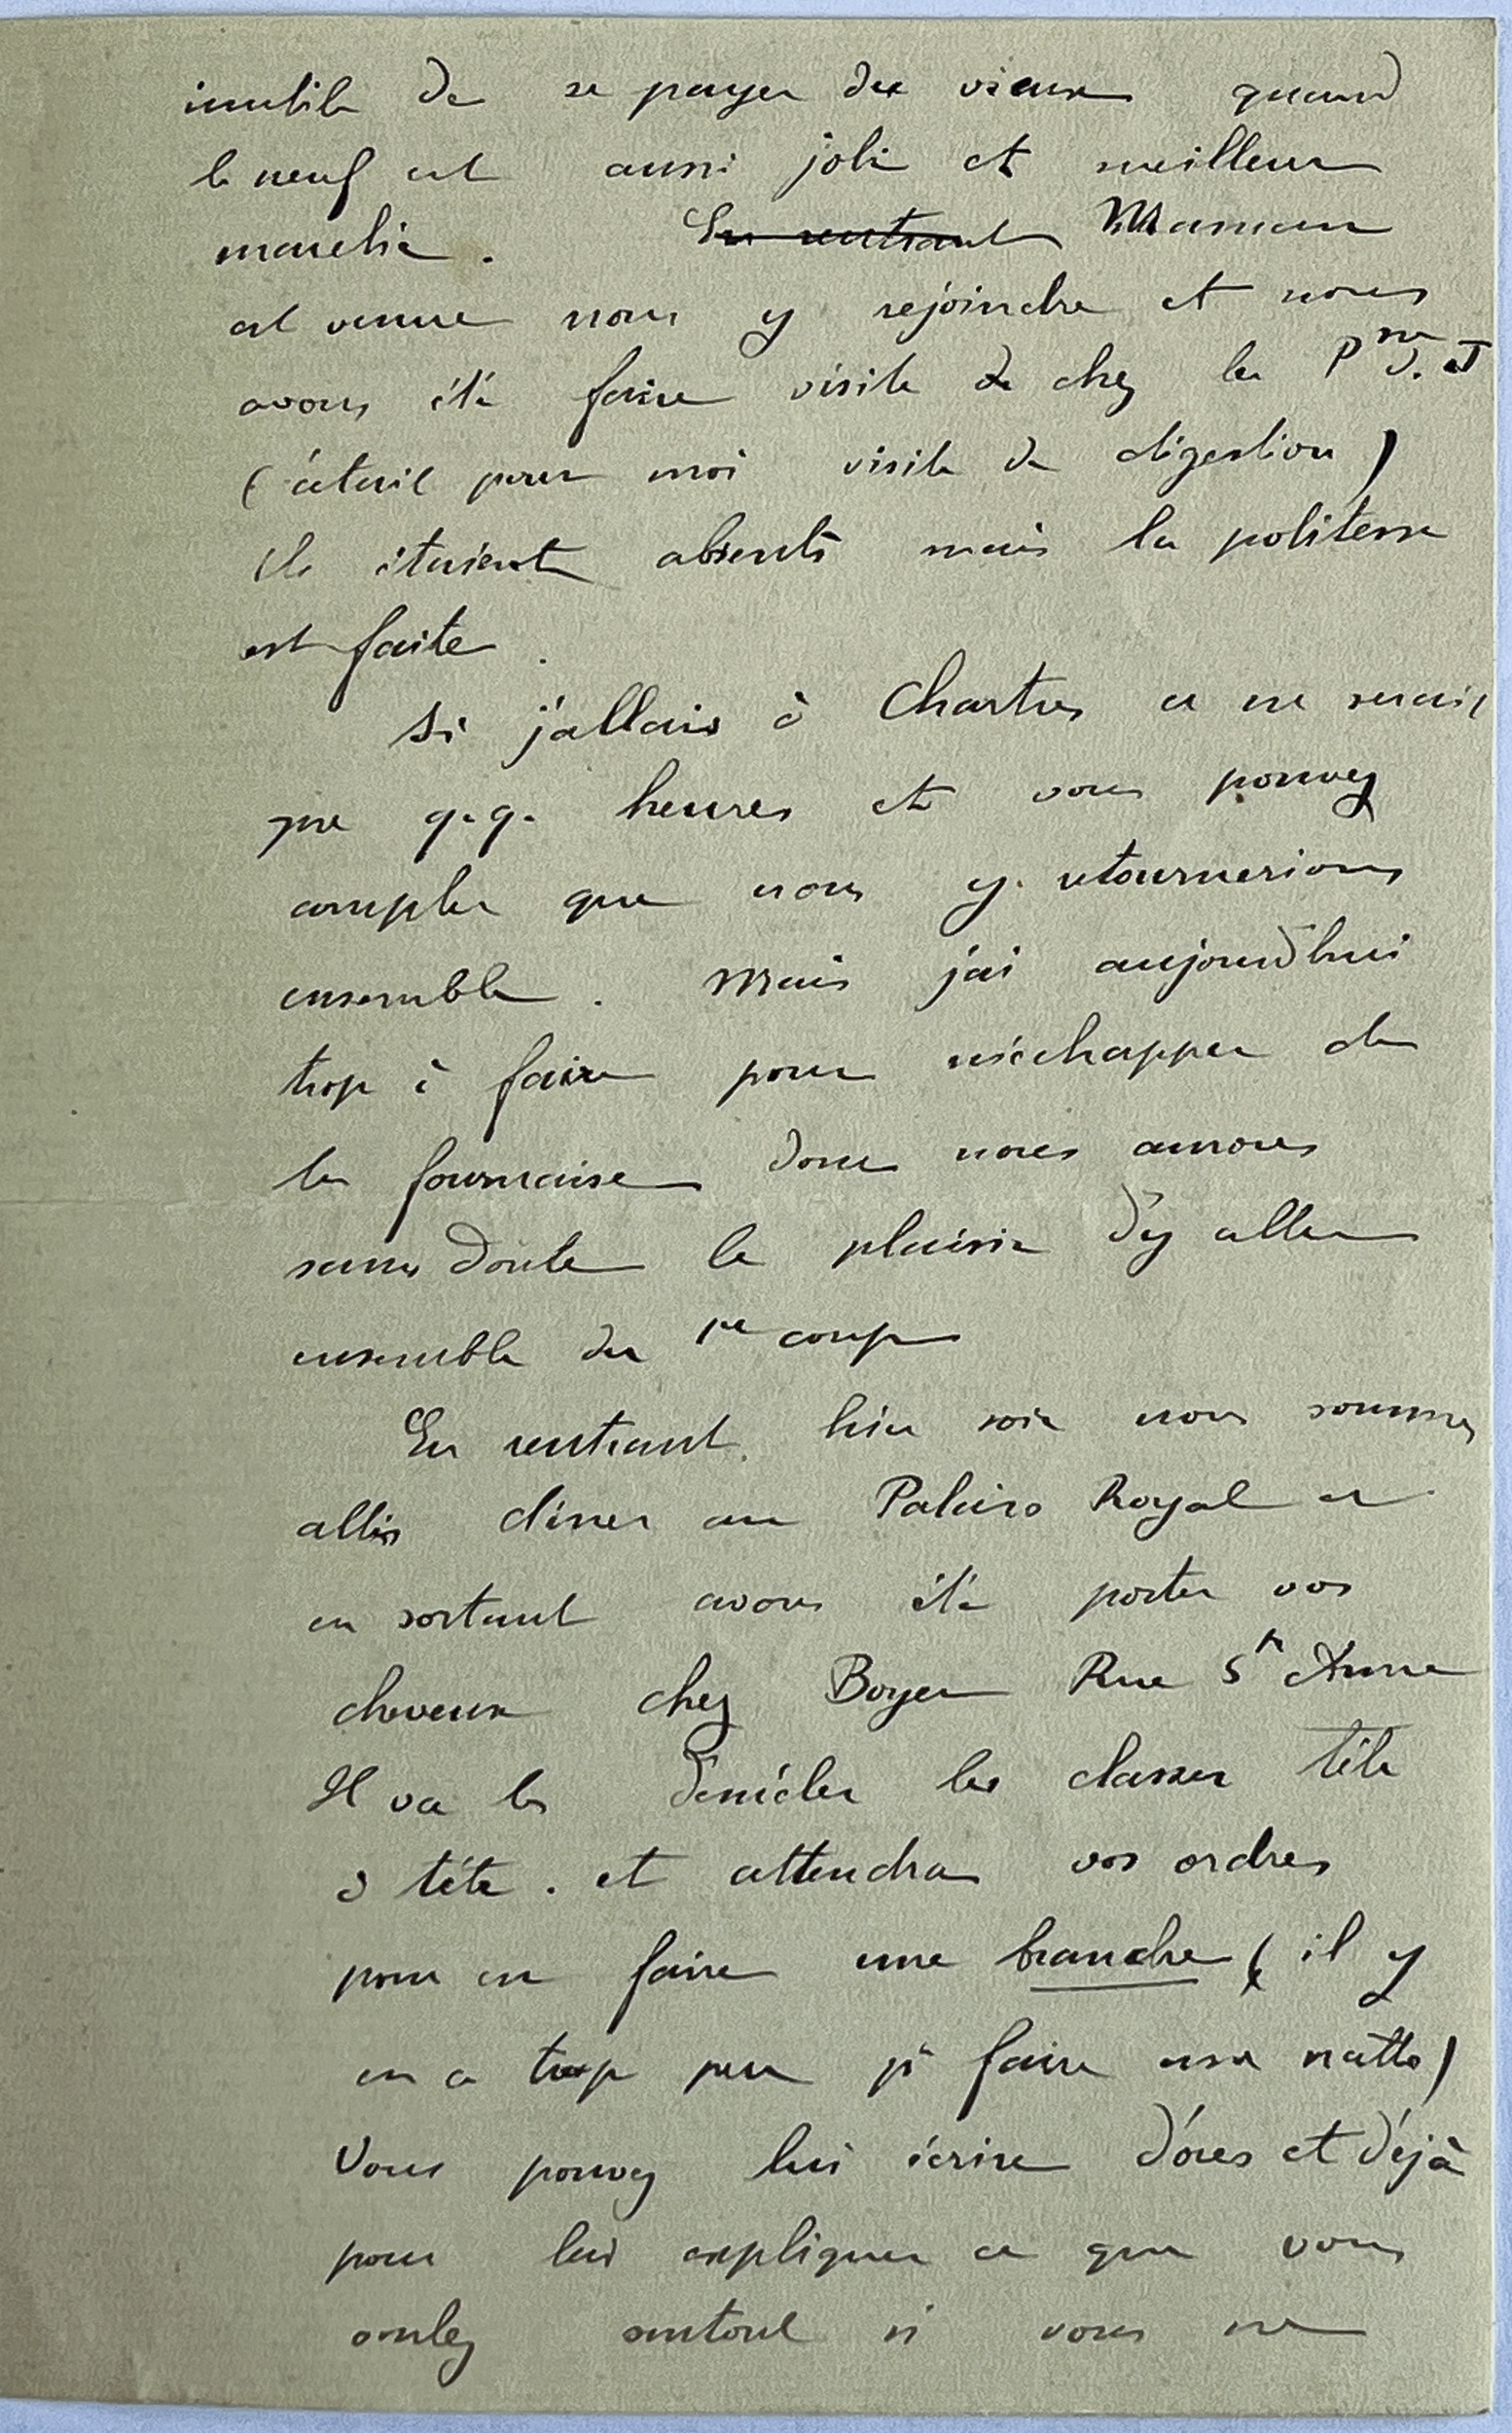 inutile de se payer du vieux quand
le neuf est aussi joli et meilleur
marché. En rentrant Maman
est venue nous y rejoindre et nous
avons été faire visite de chez la P
(c'était pour moi visite de digestion)
Ils étaient absents mais la politesse
est faite.
Si j'allais à Chartres ce ne serait
que q.q. heures et vous pouvez
compter que nous y retournerions
ensemble. Mais j'ai aujourd'hui
trop à faire pour m'échapper de
la fournaise donc nous aurons
sans doute le plaisir d'y aller
ensemble du 1er coup
En rentrant hier soir nous sommes
allés dîner au Palais Royal et
en sortant avons été porter vos
cheveux chez Boyer Rue Ste Anne
Il va les démêler les classer tête
à tête. et attendra vos ordres
pour en faire une branche (il y
en a trop peu pr faire une natte)
Vous pouvez lui écrire d'ores et déjà
pour lui expliquer ce que vous
voulez surtout si vous ne